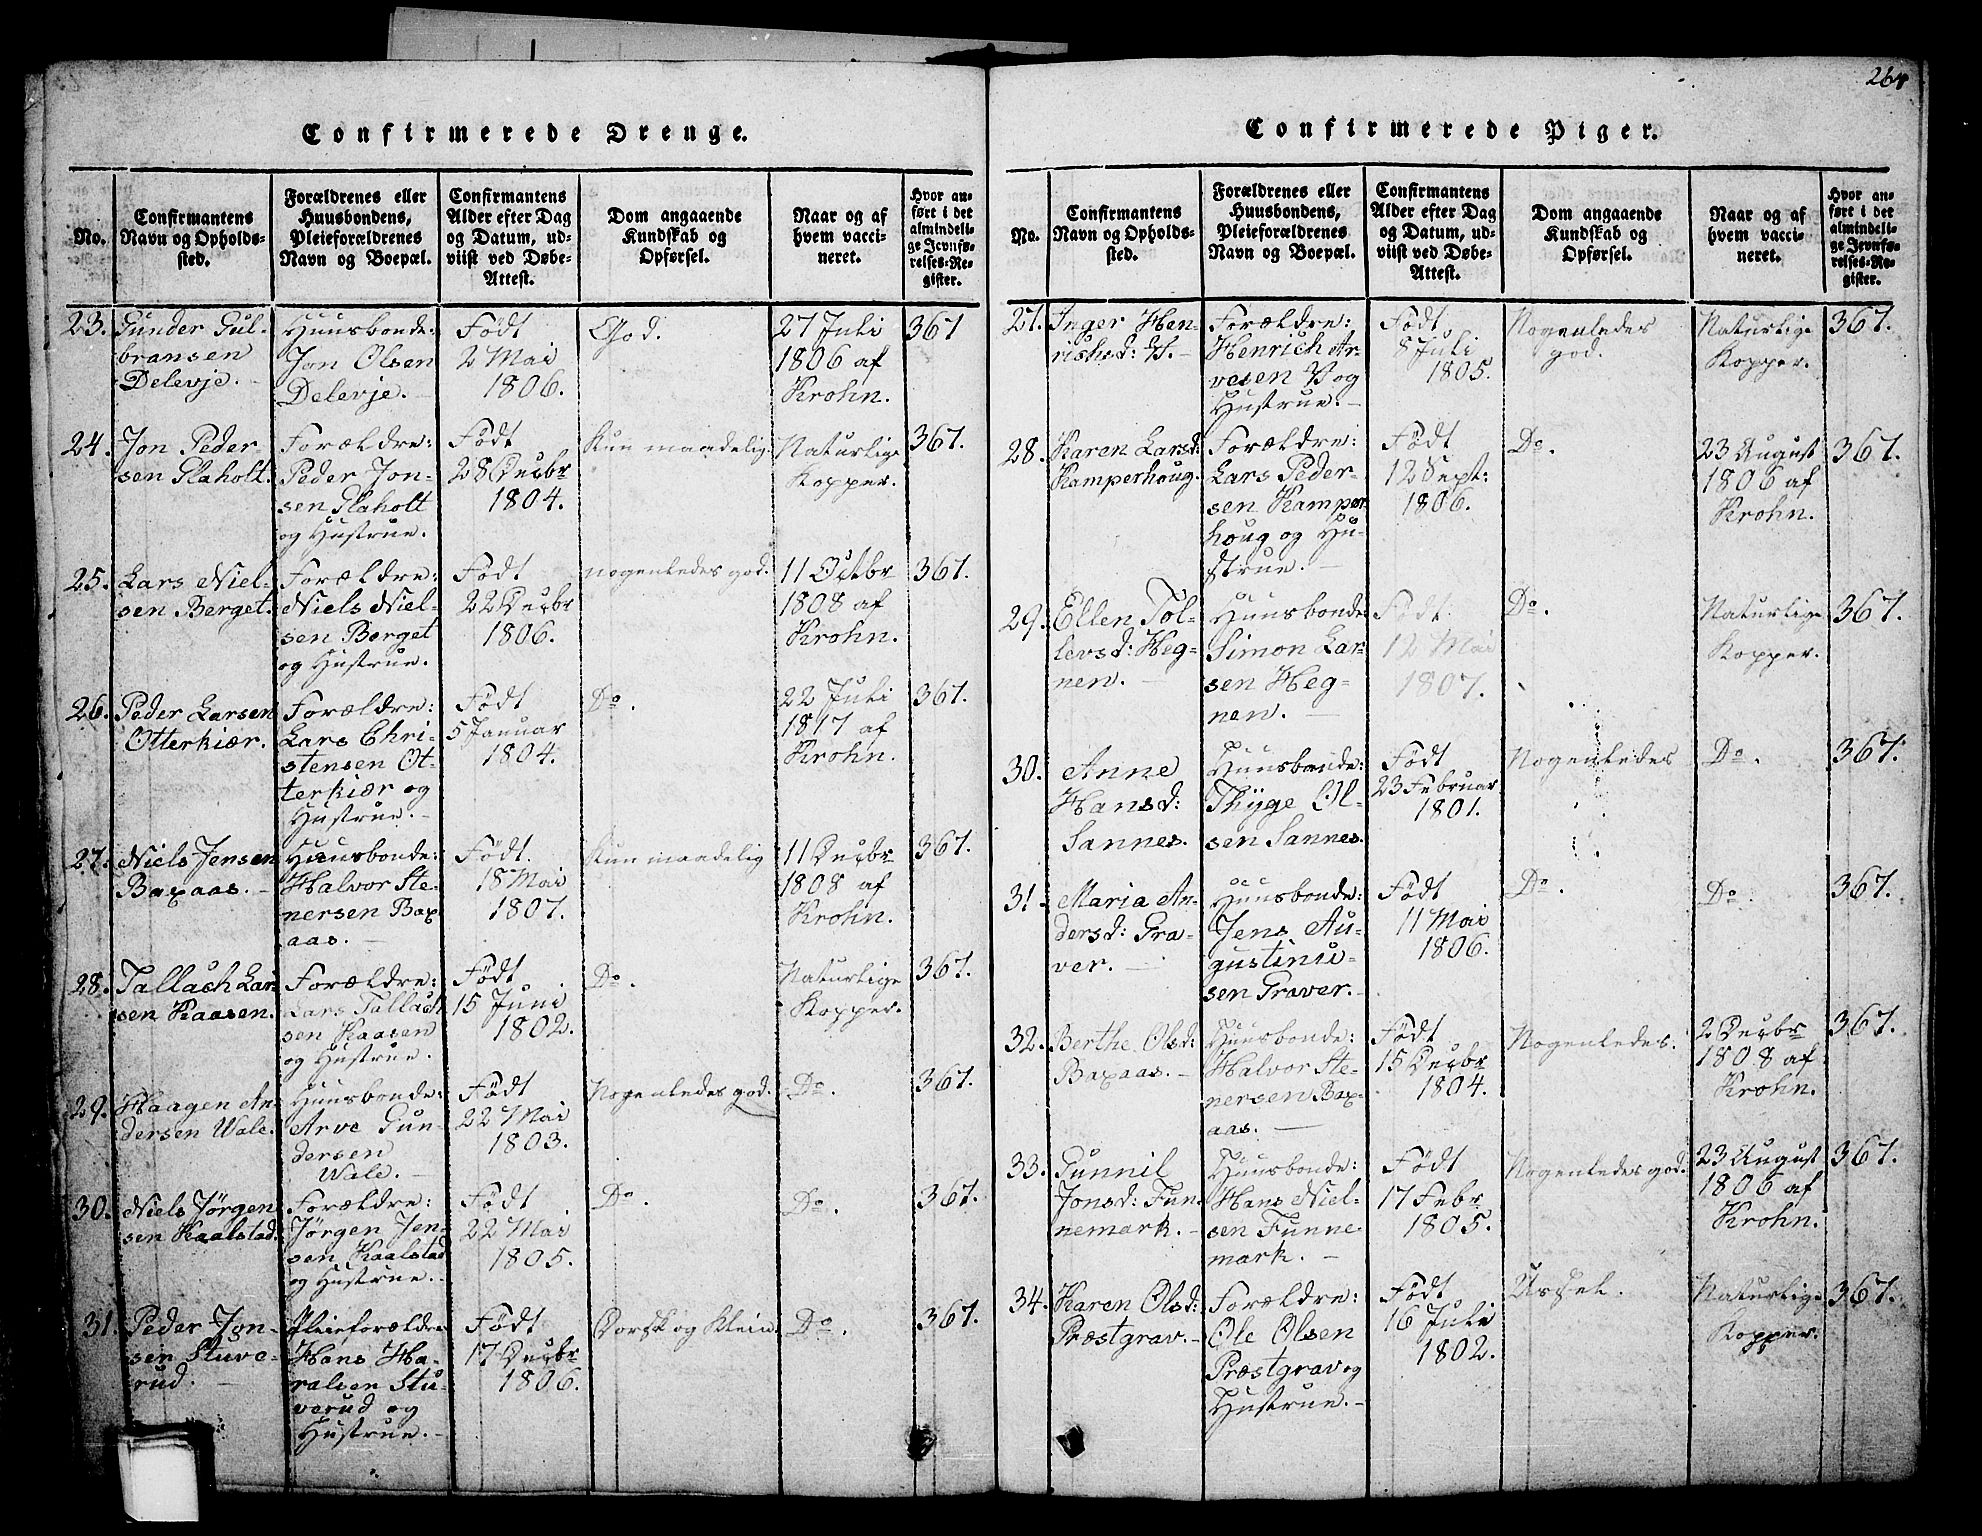 264
Confirmerede Drenge.
No.
Confirmantens
Navn og Opholds-
sted.
Forældrenes eller
Huusbondens,
Pleieforældrenes
Navn og Boepæl.
Confirmantens
Alder efter Dag
og Datum, ud-
viist ved Døbe-
Attest.
Dom angaaende
Kundskab og
Opførsel.
Naar og af
hvem vacci-
neret.
Hvor an-
ført i det
almindeli-
ge Jevnfø-
relses-Re-
gister.
23.
Gunder Gul-
bransen
Delevje.
Huusbonde:
Jon Olsen
Delevje.
Født
2 Mai
1806.
God.
27 Juli
1806 af
Krohn.
367
24.
Jon Peder-
sen Flaholt.
Forældre:
Peder Jon-
sen Flaholt
og Hustrue.
Født
28 Decbr
1804.
Kun maadelig.
Naturlige
Kopper.
367.
25.
Lars Niel-
sen Berget.
Forældre:
Niels Niel-
sen Berget
og Hustrue.
Født
22 Decbr
1806.
nogenledes god.
11 Octbr
1808 af
Krohn.
367.
26.
Peder Larsen
Otterkiær.
Forældre:
Lars Chri-
stensen Ot-
terkiær og
Hustrue.
Født
5 Januar
1804.
Do.
22 Juli
1817 af
Krohn.
367.
27.
Niels Jensen
Baxaas.
Huusbonde:
Halvor Ste-
nersen Bax
aas.
Født.
18 Mai
1807.
Kun maadelig
11 Decbr
1808 af
Krohn.
367.
28.
Tallach Lar-
sen Kaasen.
Forældre:
Lars Tallach
sen Kaasen
og Hustrue.
Født
15 Juni
1802.
Do.
Naturlige
Kopper.
367.
29.
Haagen An-
dersen Wale.
Huusbonde:
Arve Gun-
dersen
Wale.
Født
22 Mai
1803.
Nogenledes god.
Do.
367.
30.
Niels Jørgen
sen Kaalstad.
Forældre:
Jørgen Jen-
sen Kaalstad
og Hustrue.
Født
22 Mai
1805.
Do.
Do.
367.
31.
Peder Jon-
sen Stuve-
rud.
Pleieforældre
Hans Ha-
ralsen Stu-
verud og
Hustrue.
Født
17 Decbr
1806.
Dorsk og Klein.
Do.
367.
Confirmerede Piger.
No.
Confirmantens
Navn og Opholds-
sted.
Forældrenes eller
Huusbondens,
Pleieforældrenes
Navn og Boepæl.
Confirmantens
Alder efter Dag
og Datum, ud-
viist ved Døbe-
Attest.
Dom angaaende
Kundskab og
Opførsel.
Naar og af
hvem vacci-
neret.
Hvor an-
ført i det
almindeli-
ge Jevnfø-
relses-Re-
gister.
27.
Inger Hen-
richsd:
Forældre:
Henrich Ar-
vesen og
Hustrue.
Født
8 Juli
1805.
Nogenledes
god.
Naturlige
Kopper.
367.
28.
Karen Larsd:
Kamperhoug.
Forældre:
Lars Peder-
sen Kamper
houg og Hu-
strue.
Født
12 Sept:
1806.
Do.
23 August
1806 af
Krohn.
367.
29.
Ellen Tol-
levsd: Heg-
nen.
Huusbonde
Simon Lar-
sen Heg-
nen.
Født
12 Mai
1807.
Do.
Naturlige
Kopper.
367.
30.
Anne
Hansd:
Sannes.
Huusbonde:
Thyge Ol-
sen Sannes.
Født
23 Februar
1801.
Nogenledes
Do.
367.
31.
Maria An-
dersd: Gra-
ver.
Huusbonde:
Jens Au-
gustinu-
sen Graver.
Født
11 Mai
1806.
Do.
Do.
367.
32.
Berthe Olsd:
Baxaas.
Huusbonde:
Halvor Ste-
nersen Bax-
aas.
Født
15 Decbr
1804.
Nogenledes.
2 Decbr
1808 af
Krohn.
367.
33.
Gunnil
Jonsd: Fun-
nemark.
Huusbonde:
Hans Niel-
sen Funne-
mark.
Født
17 Febr
1805.
Nogenledes god.
23 August
1806 af
Krohn.
367.
34.
Karen Olsd:
Præstgrav.
Forældre:
Ole Olsen
Præstgrav og
Hustrue.
Født
16 Juli
1802.
Ussel.
Naturlige
Kopper.
367.